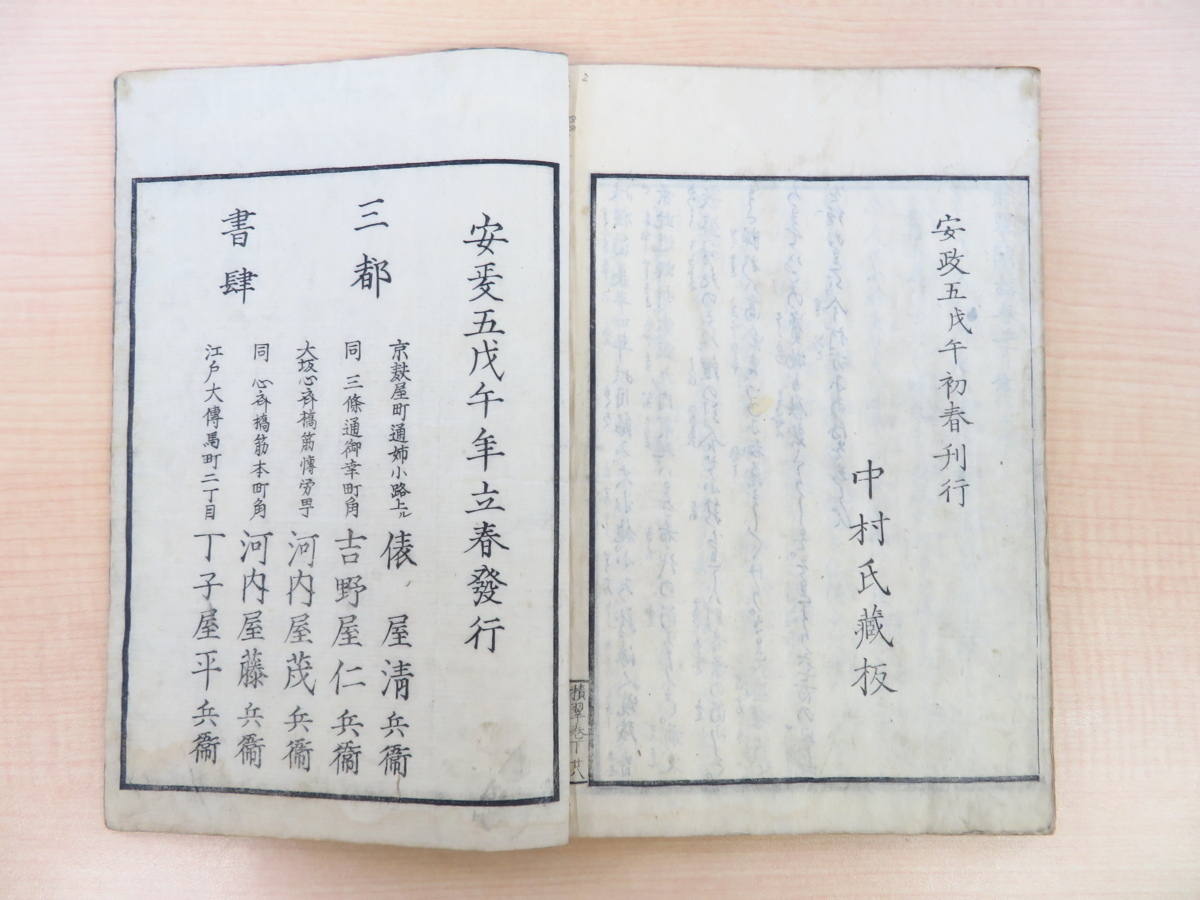 安政五戊午初春刊行
中村氏藏板
積翠卷下 廿八
安政五戊午年立春發行
三都
書肆
京麩屋町通姉小路上ル 俵屋清兵衞
同 三條通御幸町角 吉野屋仁兵衞
大坂心斎橋筋博労町 河内屋茂兵衞
同 心斎橋筋本町角 河内屋藤兵衞
江戸大傳馬町二丁目 丁子屋平兵衞